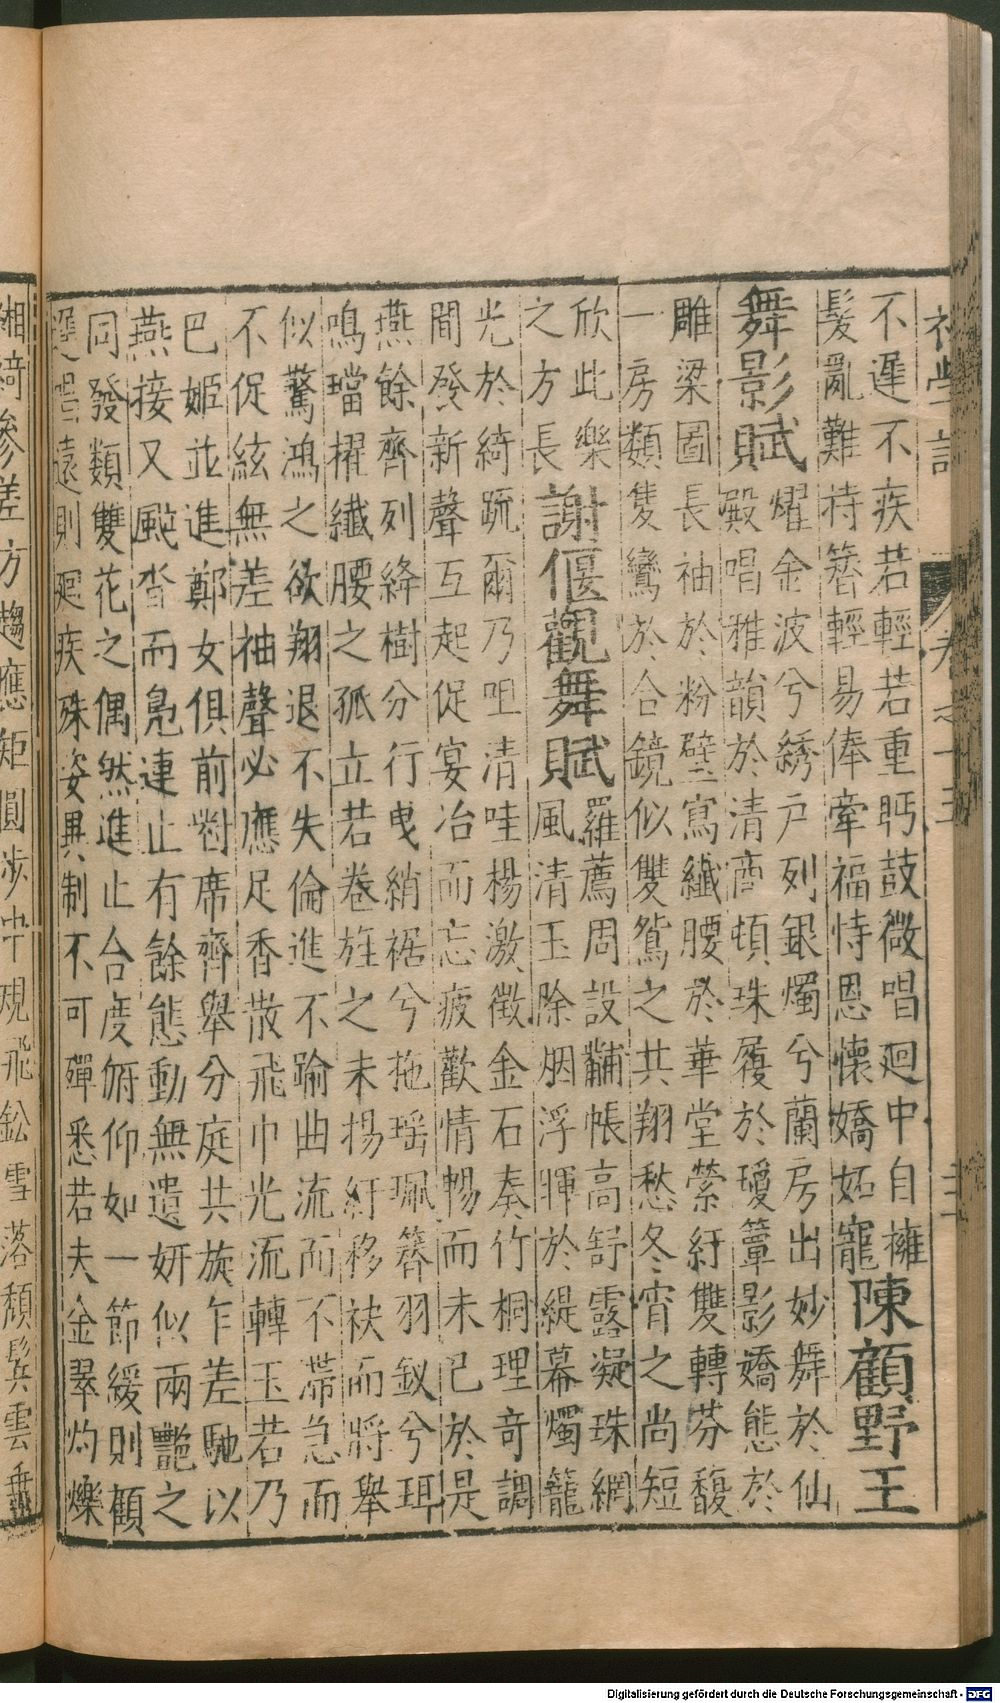 初學記 卷之十五 三
不遲不疾若輕若重眄鼓微唱迴中自擁
髮亂難持簪輕易俸牽福恃恩懷嬌妬寵
陳顧野王
舞影賦
燿金波兮綉戶列銀燭兮蘭房出妙舞於仙
殿唱雅韻於清商頓珠履於瓊簟影嬌態於
雕梁圖長袖於粉壁寫纖腰於華堂縈紆雙轉芬馥
一房類隻鸞於合鏡似雙鴛之共翔愁冬宵之尚短
欣此樂
之方長
謝偃觀舞賦
羅薦周設黼帳高舒露凝珠網
風清玉除烟浮暉於緹幕燭籠
光於綺疏爾乃咀清哇楊激徵金石奏竹桐理奇調
間發新聲互起促宴冶而忘疲歡情暢而未已於是
燕餘齊列絳樹分行曳綃裾兮拖瑶珮簪羽釵兮珥
鳴璫擢纖腰之孤立若卷旌之未揚紆移袂而將舉
似驚鴻之欲翔退不失倫進不踰曲流而不滯急而
不促絃無差袖聲必應足香散飛巾光流轉玉若乃
巴姬並進鄭女俱前對席齊舉分庭共旋乍差馳以
燕接又颰沓而鳧連止有餘態動無遺妍似兩艷之
同發類雙花之偶然進止合度俯仰如一節緩則顧
遲唱遠則廻疾殊姿異制不可殫悉若夫金翠灼爍
緗綺參差方趨應矩圓步中規飛鈆雪落頹髩雲垂
Digitalisierung gefördert durch die Deutsche Forschungsgemeinschaft - DFG